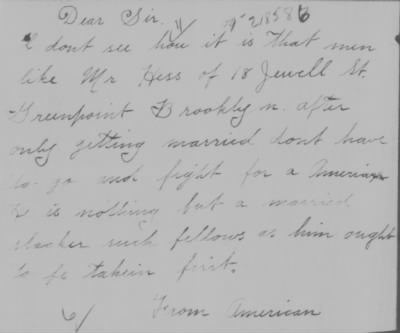 Dear Sir. 11/ 218586
I dont see how it is that men
like Mr Hess of 18 Jewell St.
Greenpoint Brooklyn. after
only getting married dont have
to go and fight for a American
he is nothing but a married
slacker such fellows as him ought
to be takein first.
6/ From American